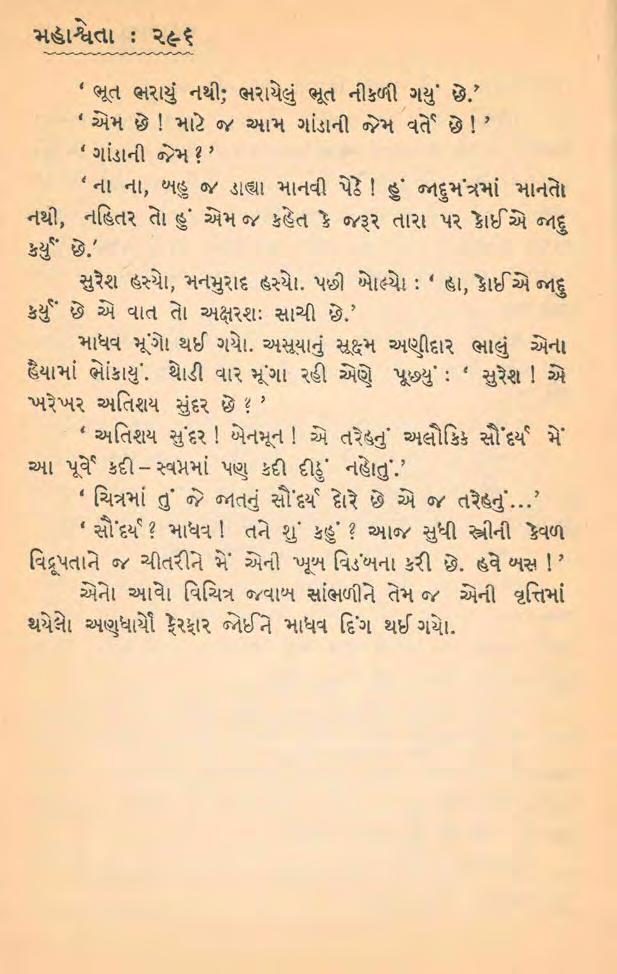 મહાશ્વેતા : ૨૯૬
‘ ભૂત ભરાયું નથી; ભરાયેલું ભૂત નીકળી ગયું છે.’
‘ એમ છે ! માટે જ આમ ગાંડાની જેમ વર્તે છે ! ’
‘ ગાંડાની જેમ ? ’
‘ ના ના, બહુ જ ડાહ્યા માનવી પેઠે ! હું જાદુમંત્રમાં માનતો
નથી, નહિતર તો હું એમ જ કહેત કે જરૂર તારા પર કોઈએ જાદુ
કર્યું છે.’
સુરેશ હસ્યો, મનમુરાદ હસ્યો. પછી બોલ્યો : ‘ હા, કોઈએ જાદુ
કર્યું છે એ વાત તો અક્ષરશઃ સાચી છે.’
માધવ મૂંગો થઈ ગયો. અસૂયાનું સૂક્ષ્મ અણીદાર ભાલું એના
હૈયામાં ભોંકાયું. થોડી વાર મૂંગા રહી એણે પૂછ્યું : ‘ સુરેશ ! એ
ખરેખર અતિશય સુંદર છે ? ’
‘ અતિશય સુંદર ! બેનમૂન ! એ તરેહનું અલૌકિક સૌંદર્ય મેં
આ પૂર્વે કદી – સ્વપ્નમાં પણ કદી દીઠું નહોતું.’
‘ ચિત્રમાં તું જે જાતનું સૌંદર્ય દોરે છે એ જ તરેહનું...’
‘ સૌંદર્ય ? માધવ ! તને શું કહું ? આજ સુધી સ્ત્રીની કેવળ
વિદ્રૂપતાને જ ચીતરીને મેં એની ખૂબ વિડંબના કરી છે. હવે બસ ! ’
એનો આવો વિચિત્ર જવાબ સાંભળીને તેમ જ એની વૃત્તિમાં
થયેલો અણધાર્યો ફેરફાર જોઈને માધવ દિંગ થઈ ગયો.